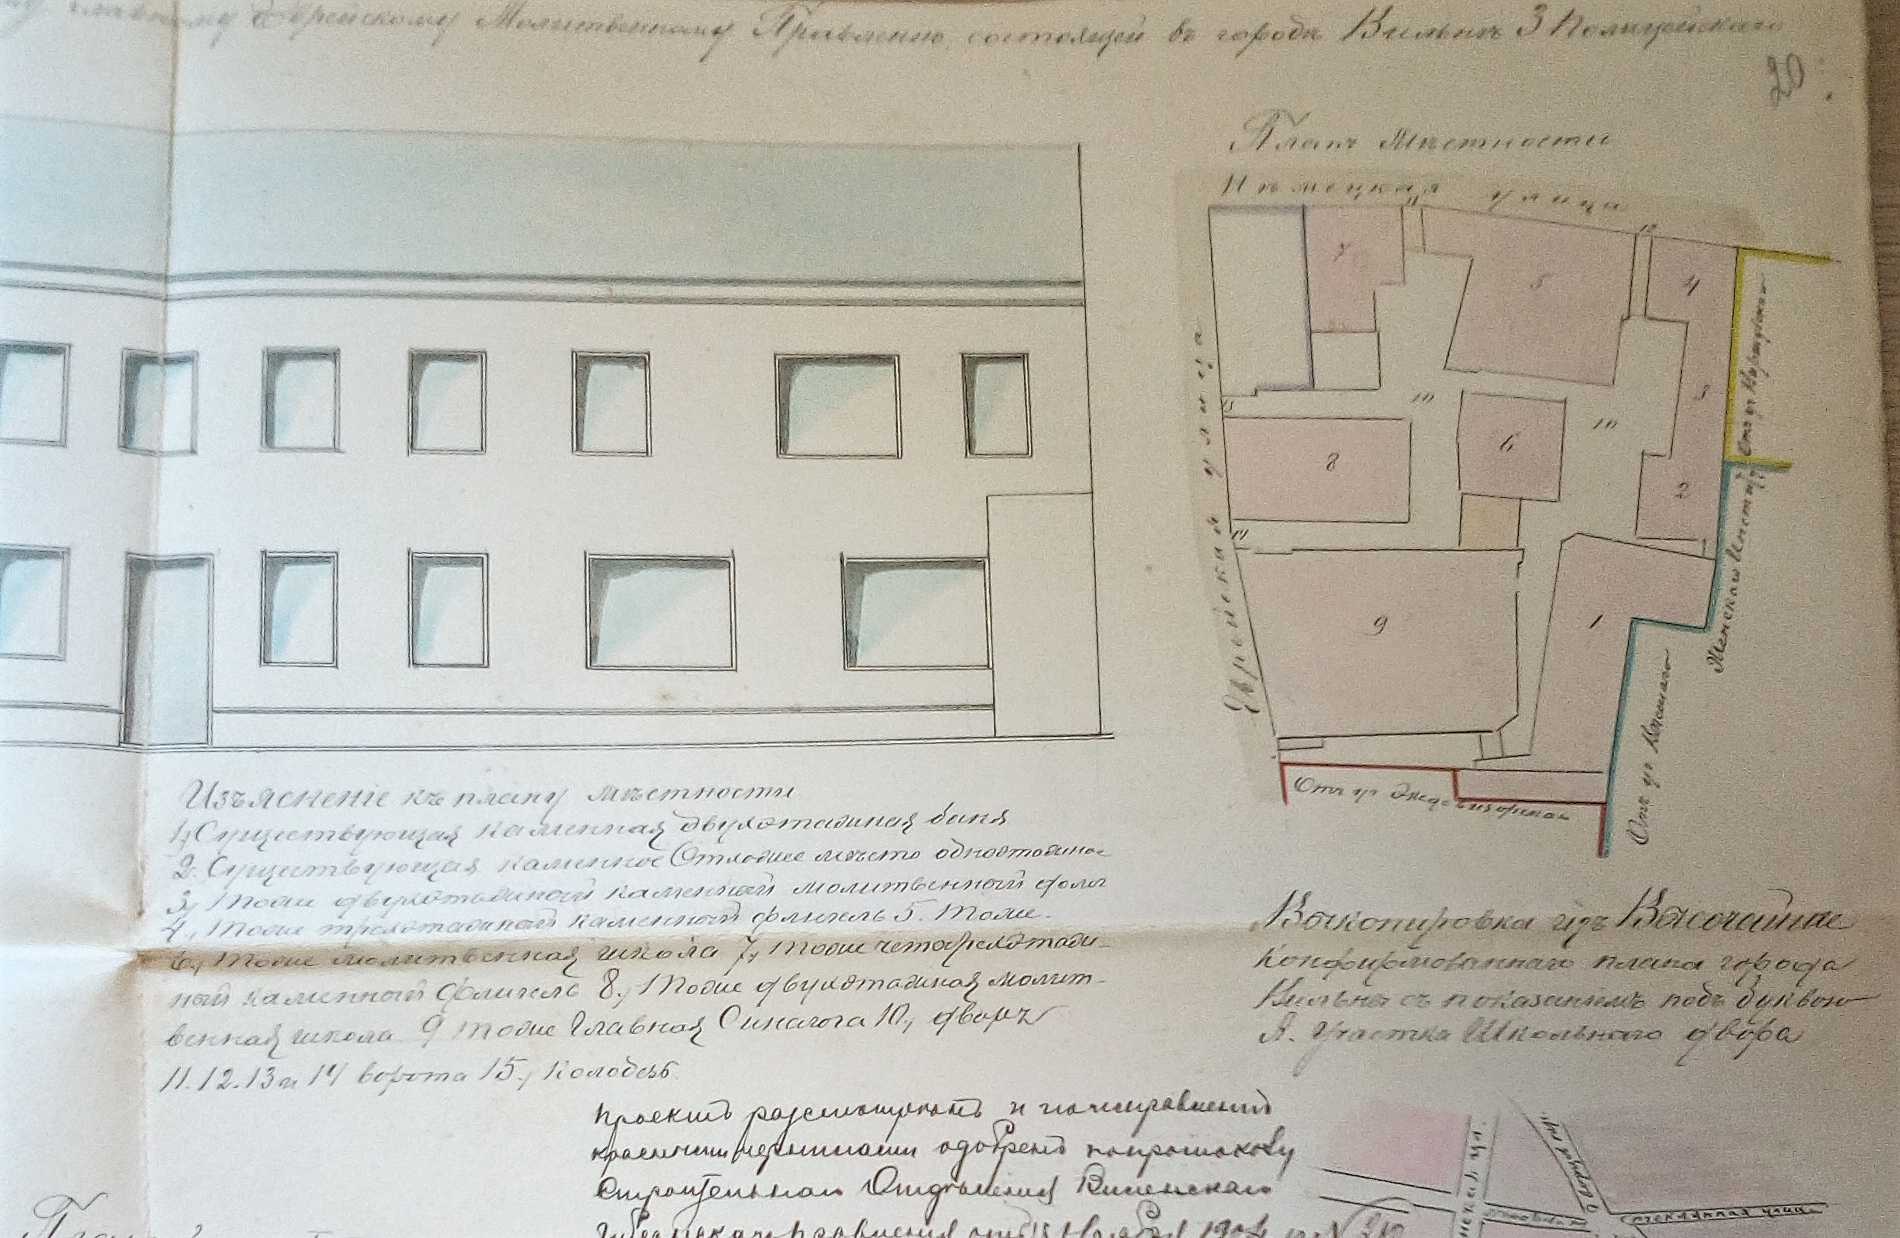 главному Еврейскому Молитвенному Правлению, состоящей въ городѣ Вильнѣ 3 Полицейскаго
20
Планъ Мѣстности
Нѣмецкая улица
11
12
7
5
4
3
Отъ ул
10
10
13
8
6
14
Еврейская улица
9
1
Отъ ул
Отъ ул
Изъясненіе къ плану мѣстности
1, Существующая каменная двухэтажная баня
2. Существующая каменное Отхожее мѣсто одноэтажное
3, Тоже двухэтажный каменный молитвенный домъ
4., Тоже трехэтажный каменный флигель 5. Тоже.
6., Тоже молитвенная школа 7, Тоже четырехэтаж-
ный каменный флигель 8., Тоже двухэтажная молит-
венная школа 9 Тоже Главная Синагога 10., дворъ
11. 12. 13 и 14 ворота 15., Колодезь
Выкопировка изъ Высочайше
Конфирмованнаго плана города
Вильны съ показаніемъ подъ буквою
А. Участка Школьнаго двора
Проектъ разсмотренъ и съ исправленіями
красными чернилами одобренъ по протоколу
Строительнаго Отдѣленія Виленскаго
Губернскаго Правленія отъ Ноября 190
Стеклянная улица